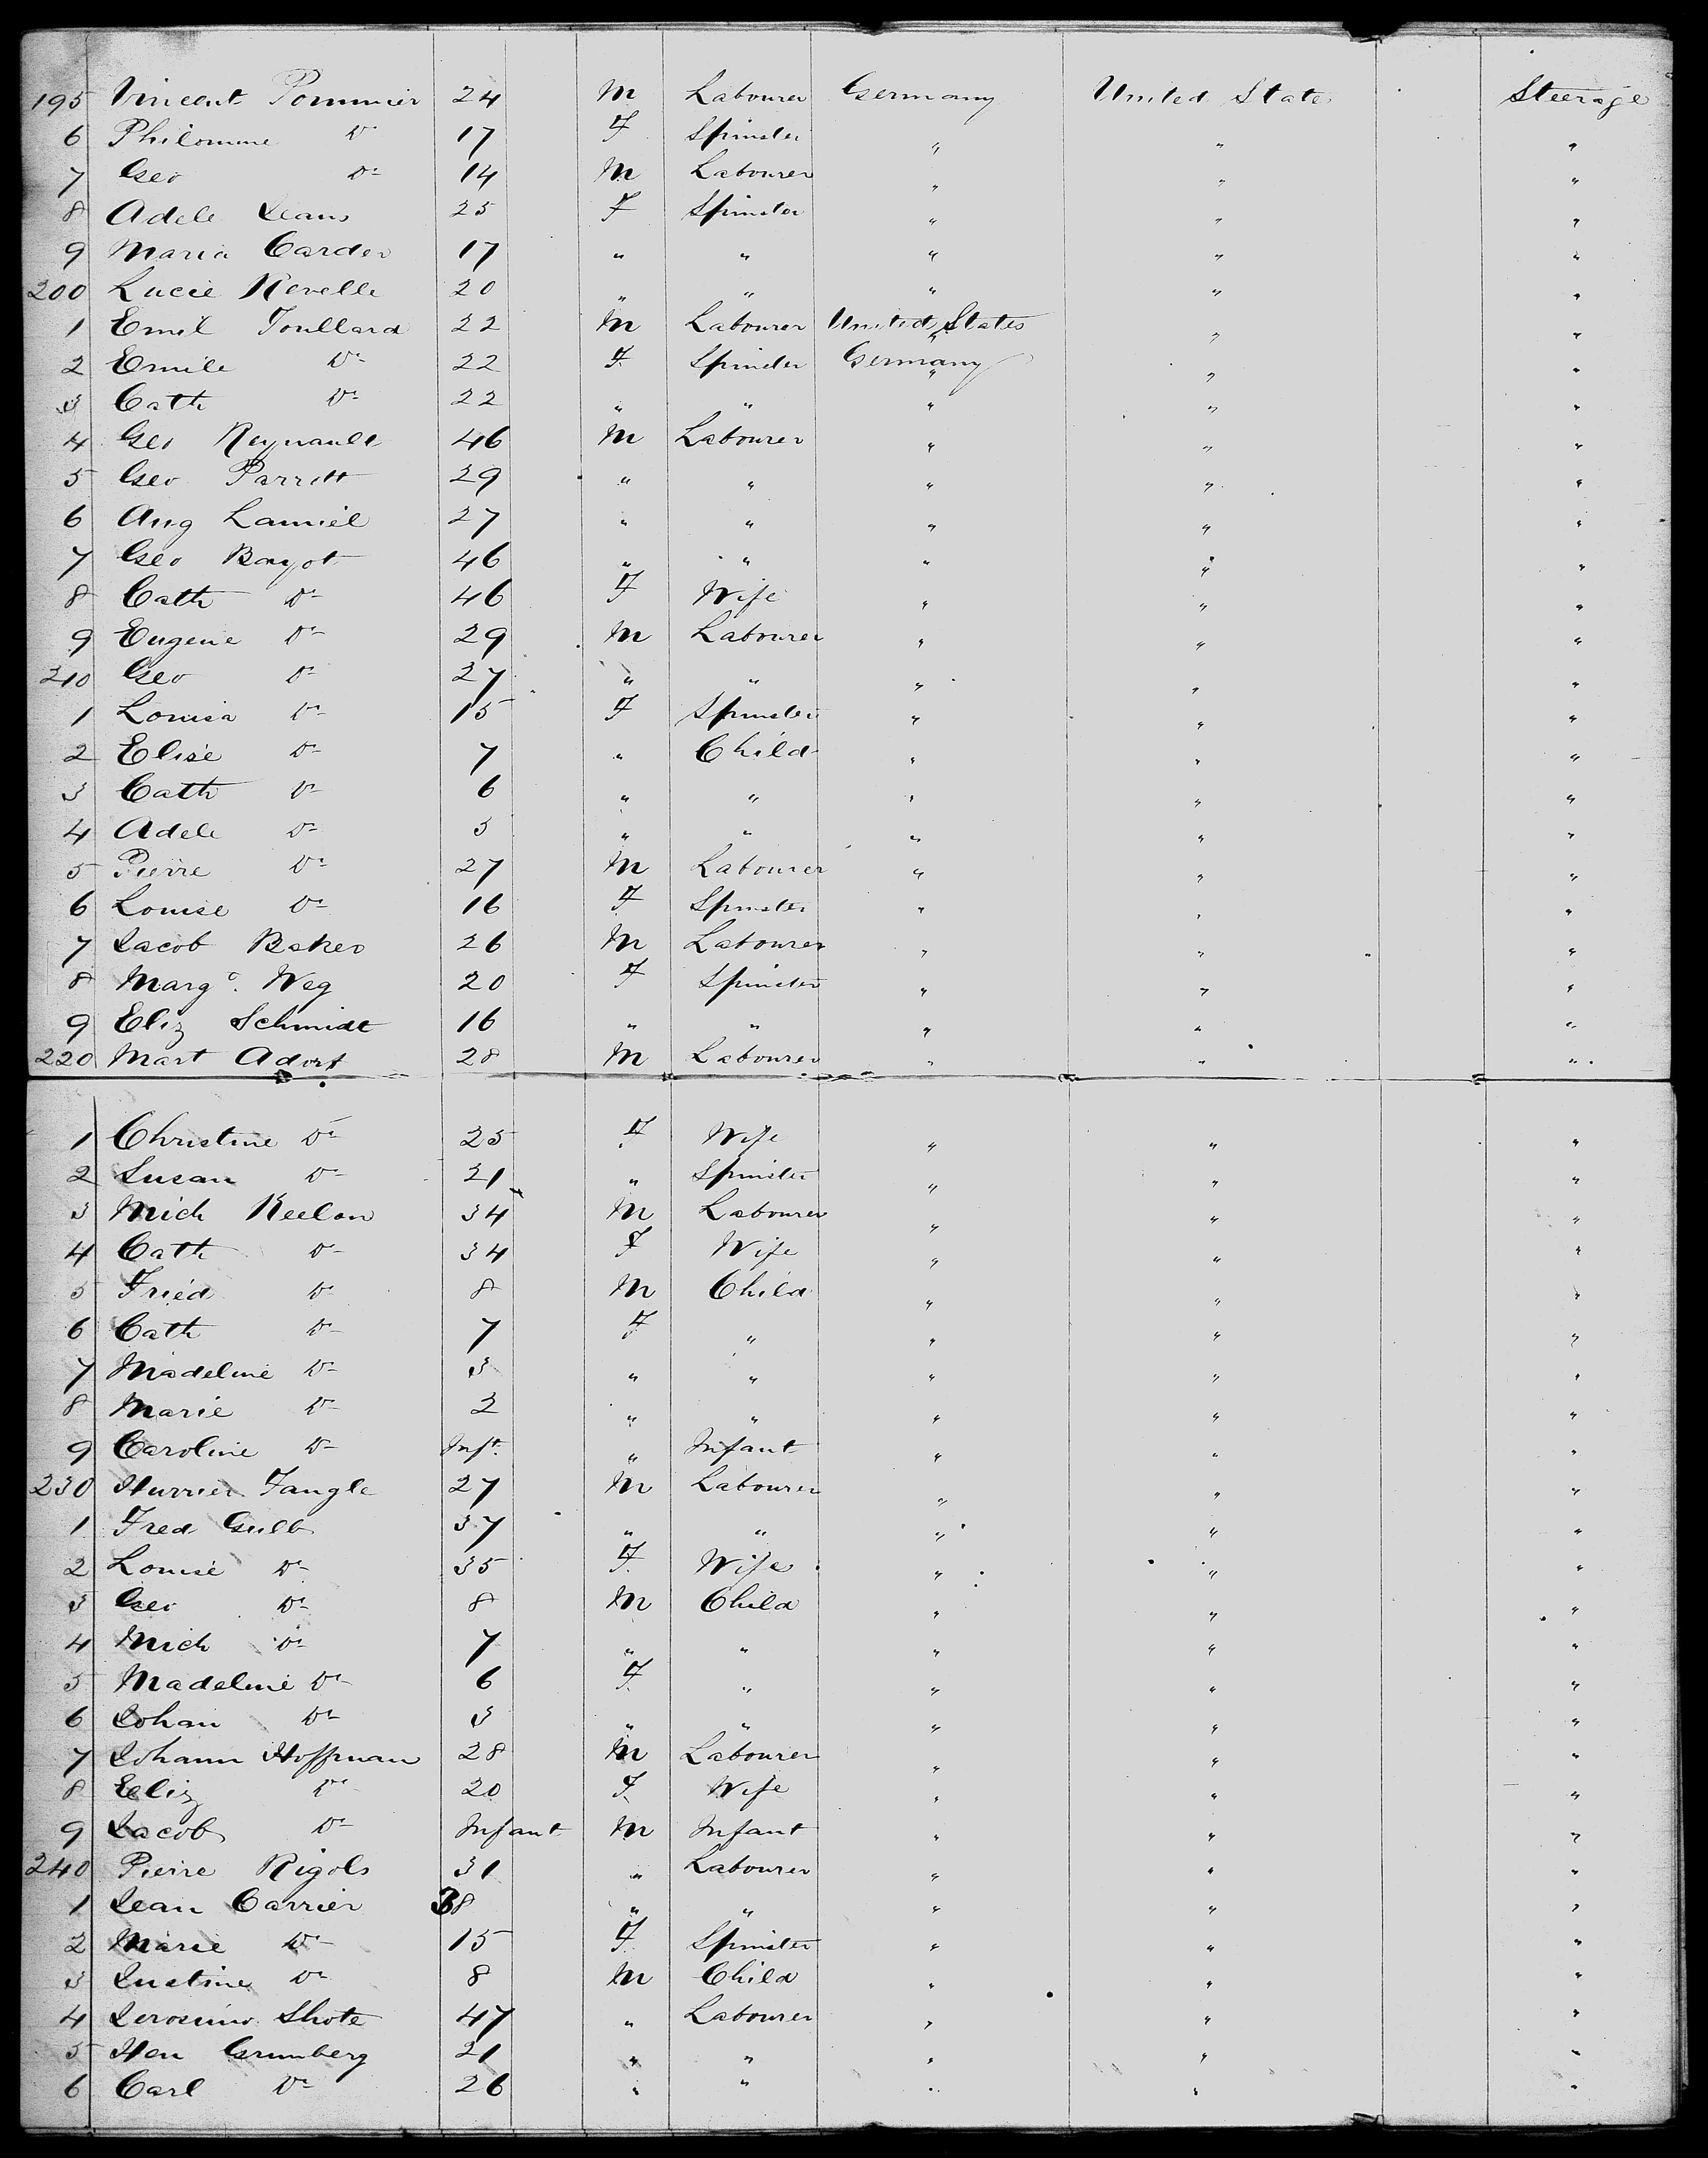 195 Vincent Pommier 24 M Labourer Germany United States Steerage
6 Philomine Do 17 F Spinster " " "
7 Geo Do 14 M Labourer " " "
8 Adele Jeans 25 F Spinster " " "
9 Maria Carder 17 " " " " "
200 Lucie Nevelle 20 " " " " "
1 Emil Joullard 22 M Labourer United States " "
2 Emile Do 22 F Spinster Germany " "
3 Cath Do 22 " " " " "
4 Geo Reynault 46 M Labourer " " "
5 Geo Parrott 29 " " " " "
6 Aug Lamiel 27 " " " " "
7 Geo Bayot 46 " " " " "
8 Cath Do 46 F Wife " " "
9 Eugene Do 29 M Labourer " " "
210 Geo Do 27 " " " " "
1 Louisa Do 15 F Spinster " " "
2 Elise Do 7 " Child " " "
3 Cath Do 6 " " " " "
4 Adele Do 3 " " " " "
5 Pierre Do 27 M Labourer " " "
6 Louise Do 16 F Spinster " " "
7 Jacob Baker 26 M Labourer " " "
8 Marg. Weg 20 F Spinster " " "
9 Eliz Schmidt 16 " " " " "
220 Mart Adorf 28 M Labourer " " "
1 Christine Do 25 F Wife " " "
2 Susan Do 21 " Spinster " " "
3 Mich Keelon 34 M Labourer " " "
4 Cath Do 34 F Wife " " "
5 Fried Do 8 M Child " " "
6 Cath Do 7 F " " " "
7 Madeline Do 3 " " " " "
8 Marie Do 2 " " " " "
9 Caroline Do Inft. " Infant " " "
230 Hurrier Fangle 27 M Labourer " " "
1 Fred Gulb 37 " " " " "
2 Louise Do 35 F Wife " " "
3 Geo Do 8 M Child " " "
4 Mich Do 7 " " " " "
5 Madeline Do 6 F " " " "
6 Johan Do 3 " " " " "
7 Johann Hoffman 28 M Labourer " " "
8 Eliz Do 20 F Wife " " "
9 Jacob Do Infant M Infant " " "
240 Pierre Rigols 31 " Labourer " " "
1 Jean Carrier 38 " " " " "
2 Marie Do 15 F Spinster " " "
3 Justine Do 8 M Child " " "
4 Jerosimo Shote 47 " Labourer " " "
5 Hen Grunberg 21 " " " " "
6 Carl Do 26 " " " " "